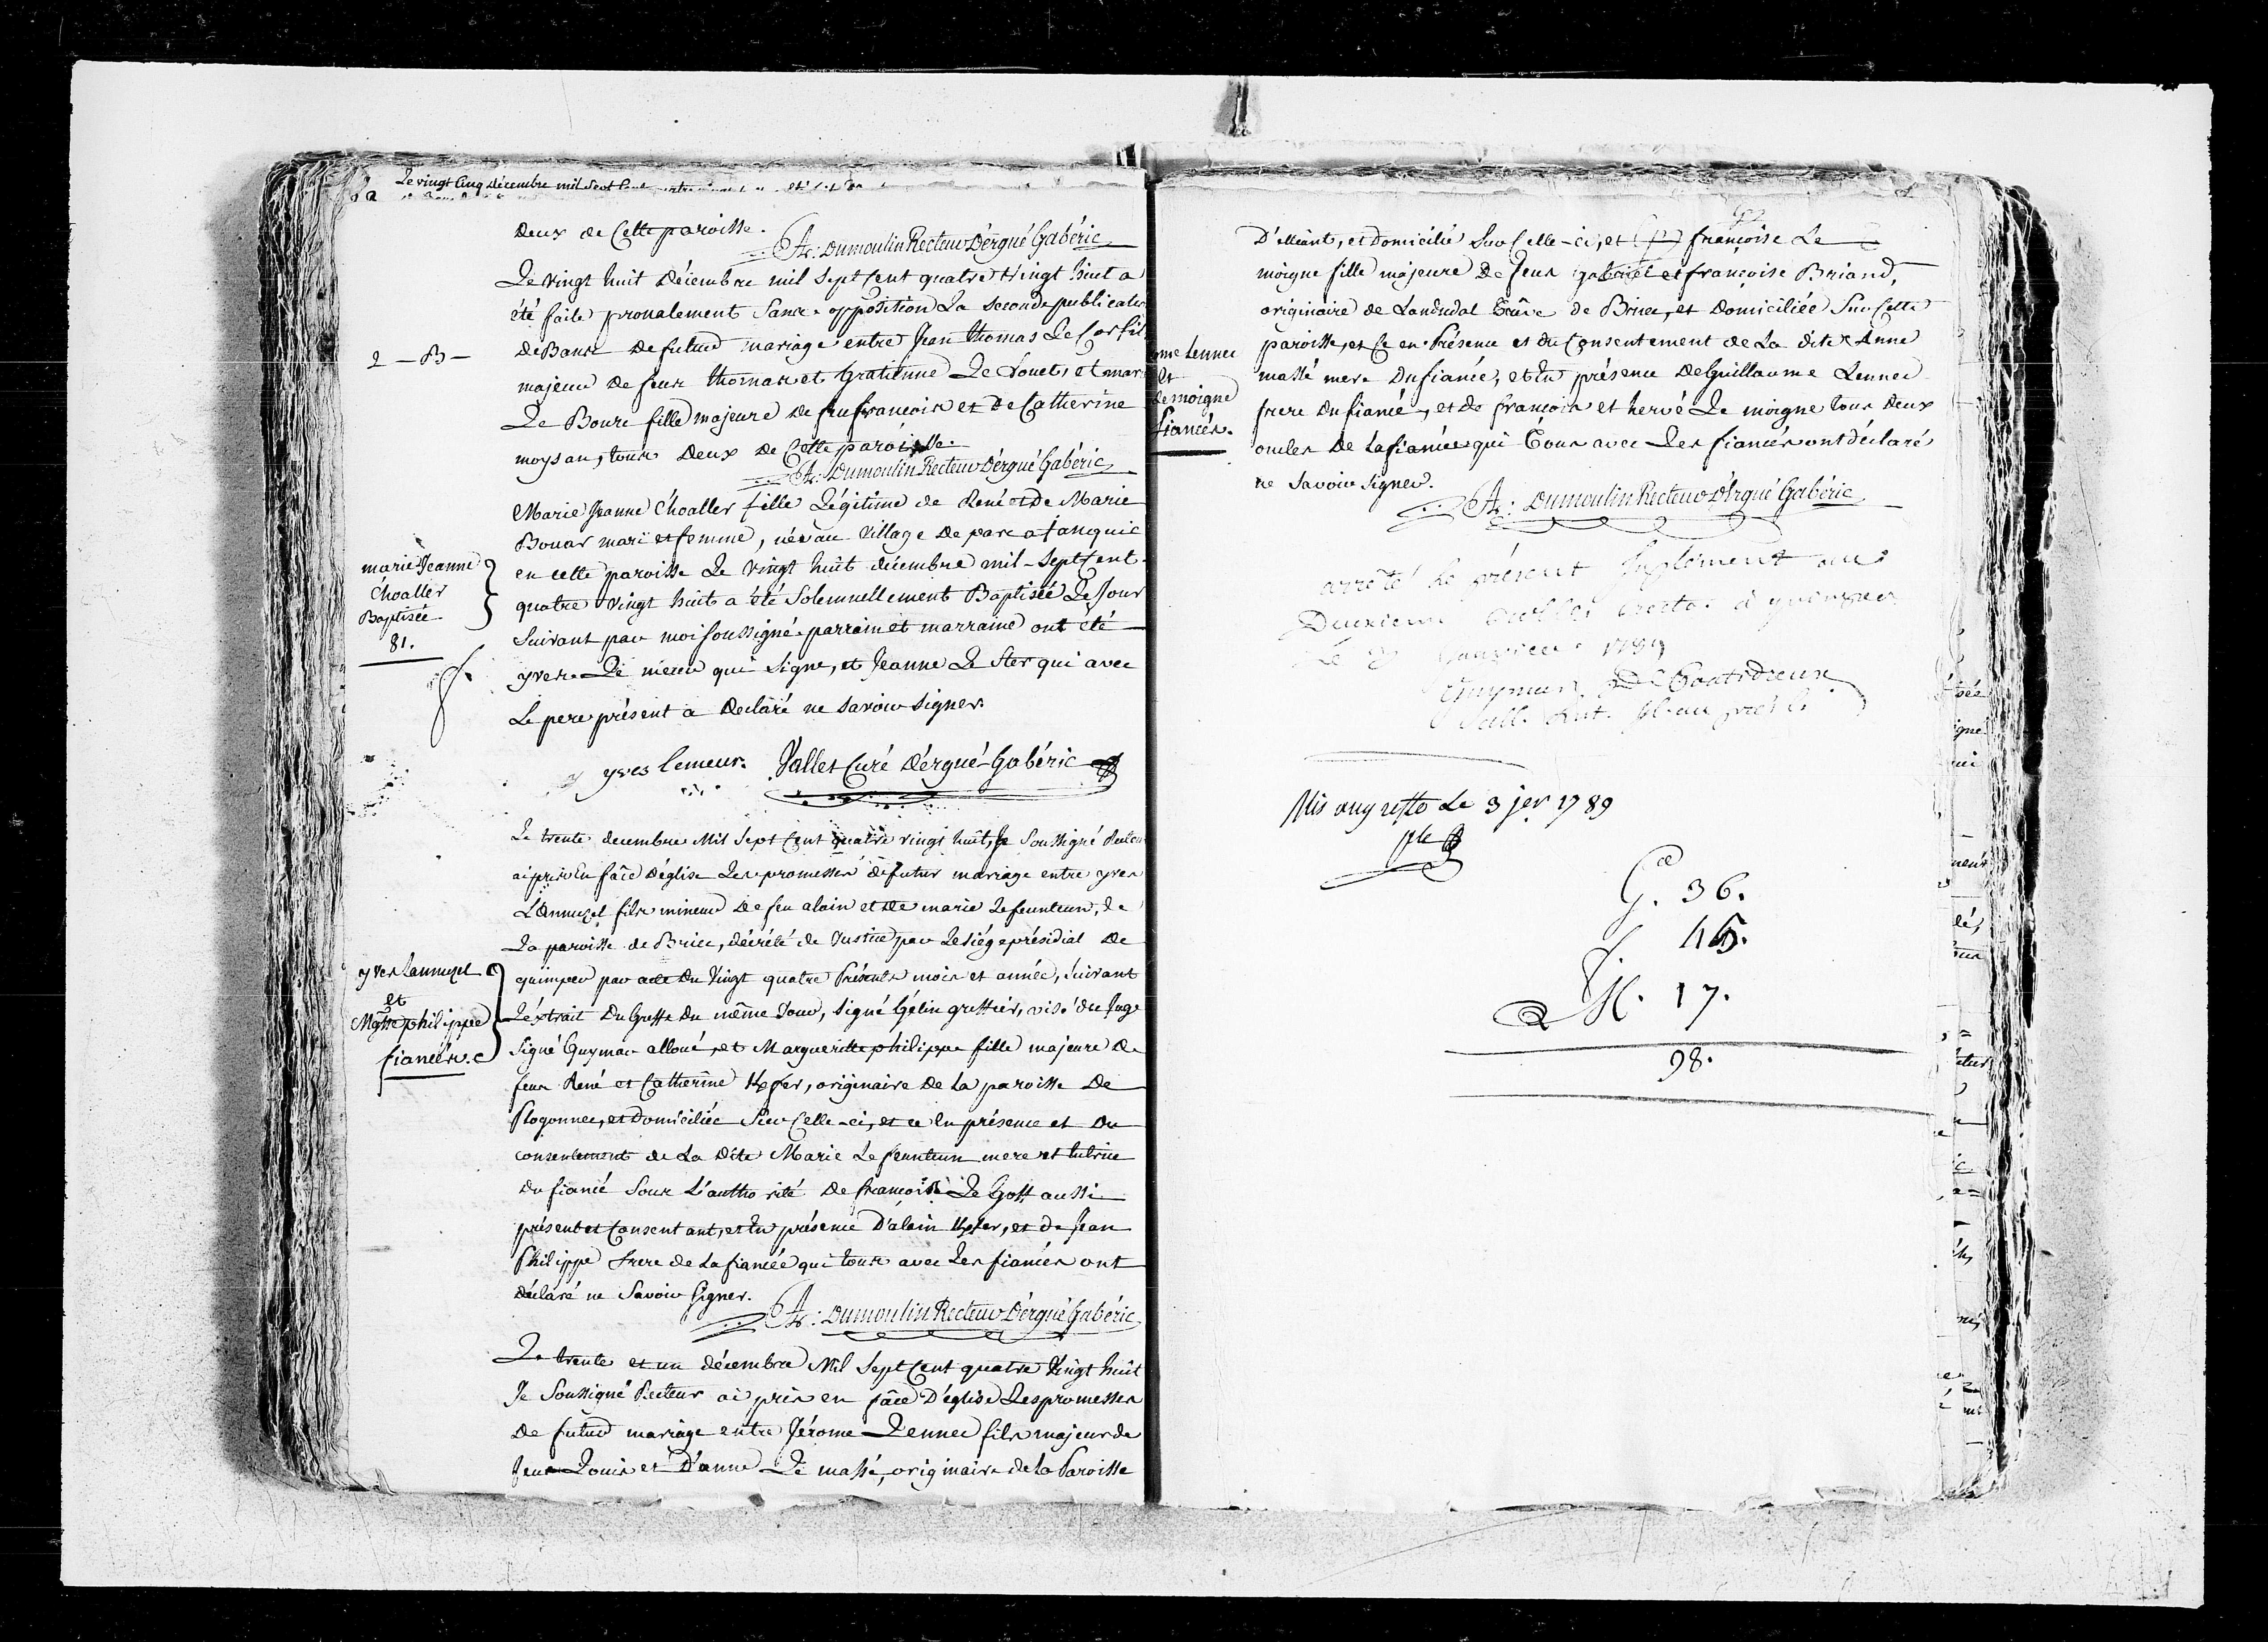 Le vingt Cinq décembre mil Sept Cent
deux de Cette paroisse.
A: Dumoulin Recteur D'érgué Gabéric
Le vingt huit Décembre mil Sept Cent quatre vingt huit a
été faite pronalement Sans opposition La seconde publication
2 - B -
de Bans de futur mariage entre Jean thomas Le Cor fils
majeur de feux thomas et Gratienne Le Louet, et mar
Le Boure fille majeure de feu françois et de Catherine
moysan, tous Deux de Cette paroisse.
A: Dumoulin Recteur D'érgué Gabéric
marie Jeanne
Choaller
Baptisée
81.
f.
Marie Jeanne Choaller fille Légitime de René et de Marie
Bouar mari et femme, née au Village de parc a Janquic
en cette paroisse Le vingt huit décembre mil-Sept Cent
quatre vingt huit a été Solemnellement Baptisée Le Jour
Suivant par moi soussigné. parrain et marraine ont été
yves Le meur qui signe, et Jeanne Le Ster qui avec
Le pere présent a Declaré ne Savoir signer.
yves lemeur. Vallet Curé D'érgué-Gabéric
Le trente decembre Mil Sept Cent quatre vingt huit, Je Soussigné Recteur
ai pris En face D'église Les promesses de futur mariage entre yves
L'Annuzel fils mineur De feu alain et De marie Le feunteun, de
La paroisse de Briec, décrété de Justice par Le siége présidial De
yves Lannuzel
et
Mgtte philippe
fiancés.
quimper par acte Du Vingt quatre Présents mois et année, Suivant
L'éxtrait Du Greffe Du même Jour, signé Gélin greffier, visé du Juge
Signé Guymar alloué, et Marguerite philippe fille majeure De
feux René et Catherine Kfer, originaire de La paroisse De
Plogonnec, et Domiciliée Sur Celle-ci, et ce En présence et Du
consentement de La Dite Marie Le feunteun mere et tutrice
Du fiancé Sous L'autho rité De françois Le Goff aussi
présent et Consentant, et En présence D'alain Kfer, et de Jean
Philippe frere de La fiancée qui tous avec Les fiancés ont
Déclaré ne Savoir Signer.
A: Dumoulin Recteur D'érgué Gabéric
Le trente et un décembre Mil Sept Cent quatre Vingt huit
Je Soussigné Recteur ai pris en face D'église Les promesses
De futur mariage entre Jérome Lennec fils majeur de
feux Louis et D'anne Le massé, originaire de La Paroisse
D'elliant, et Domicilié Sur Celle-ci, et françoise Le
moigne fille majeure De feux gabriel et françoise Briand,
originaire de Landudal trève de Briec, et Domiciliée Sur Cette
ome Lennec
et
Le moigne
fiancés.
paroisse, et Ce en Présence et du Consentement de La dite Anne
massé mere Du fiancé, et En présence De Guillaume Lennec
frere Du fiancé, et de françois et hervé Le moigne tous Deux
oncles De La fiancée qui tous avec Les fiancés ont déclaré
ne Savoir signer.
A: Dumoulin Recteur D'érgué Gabéric
arrêté le présent Suplement au
Deuxieme à quimper
Le 1789
Guymar De Coatidreux
Mis auy Le 3 jer 1789
G. 36.
f. 45.
M. 17.
98.